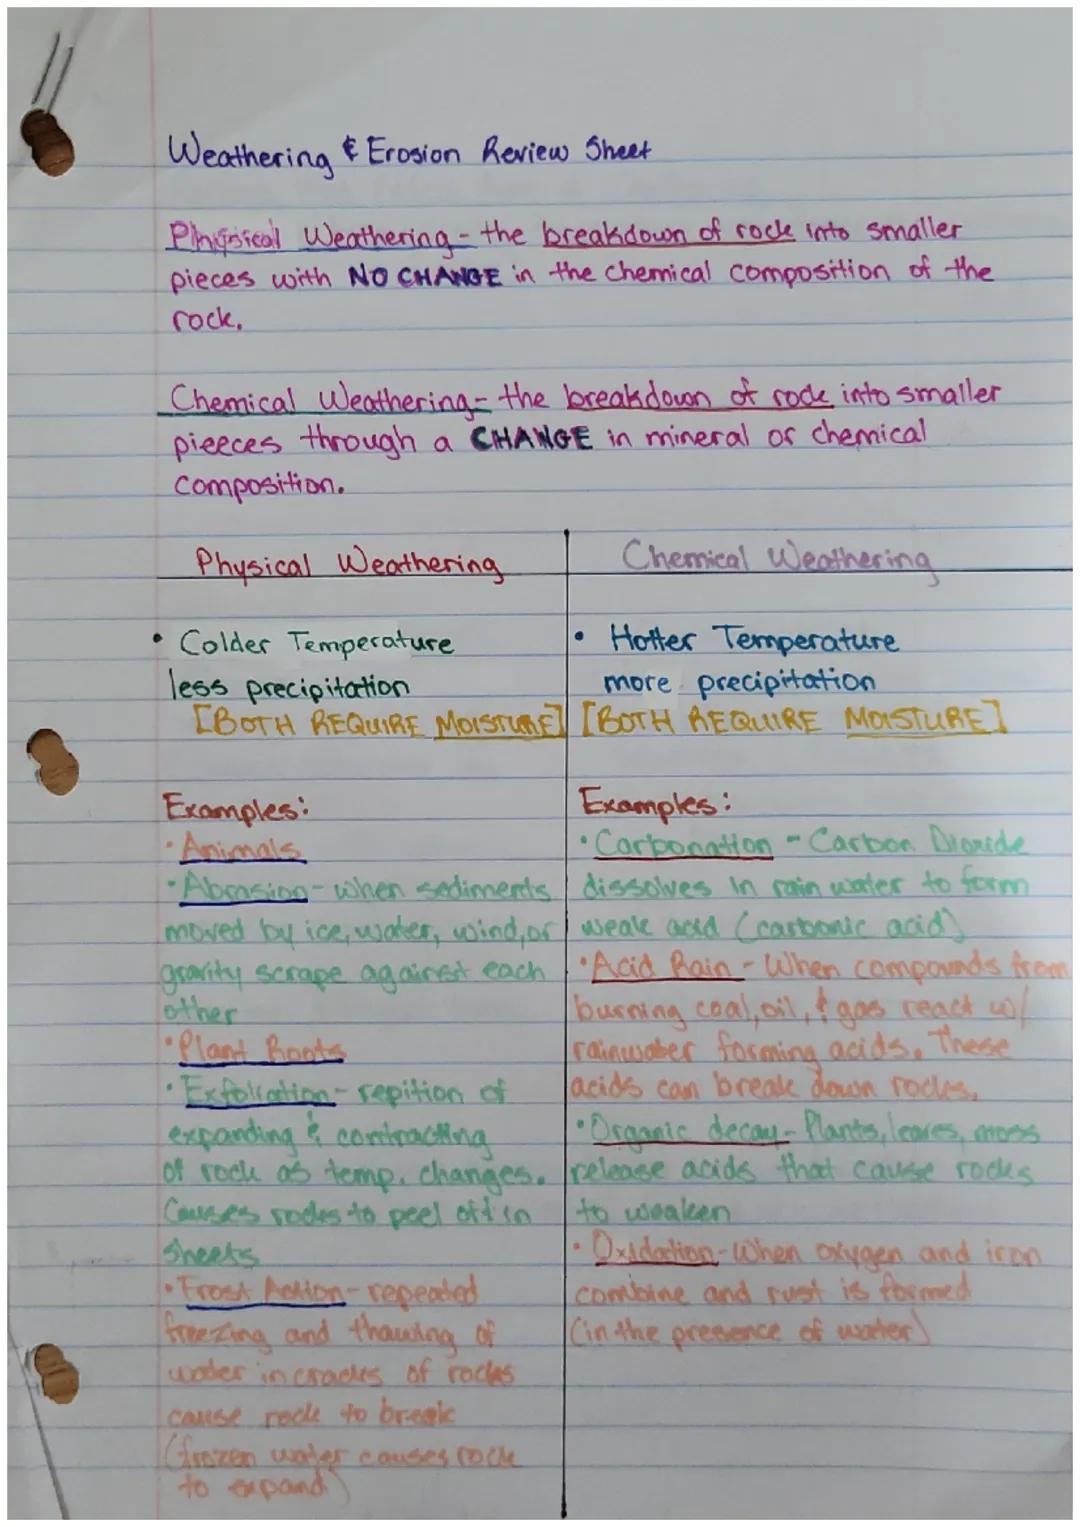 Weathering & Erosion Review Sheet
Physical Weathering - the breakdown of rock into smaller
pieces with NO CHANGE in the chemical composition of the
rock.
Chemical Weathering - the breakdown of rock into smaller
pieeces through a CHANGE in mineral or chemical
composition.
Physical Weathering
• Colder Temperature
less precipitation
[BOTH REQUIRE MOISTURE]
Examples:
• Animals
• Abrasion - when sediments
moved by ice, water, wind, or
gravity scrape against each
other
• Plant Roots
• Exfoliation - repition of
expanding & contracting
of rock as temp. changes.
Causes rocks to peel off in
sheets
• Frost Action - repeated
freezing and thawing of
water in cracks of rocks
cause rock to break
(frozen water causes rock
to expand)
Chemical Weathering
• Hotter Temperature
more precipitation
[BOTH REQUIRE MOISTURE]
Examples:
• Carbonation - Carbon Dioxide
dissolves in rain water to form
weak acid (carbonic acid)
• Acid Rain - When compounds from
burning coal, oil, & gas react w/
rainwater forming acids. These
acids can break down rocks.
• Organic decay - Plants, leaves, moss
release acids that cause rocks
to weaken
• Oxidation - When oxygen and iron
combine and rust is formed
(in the presence of water)